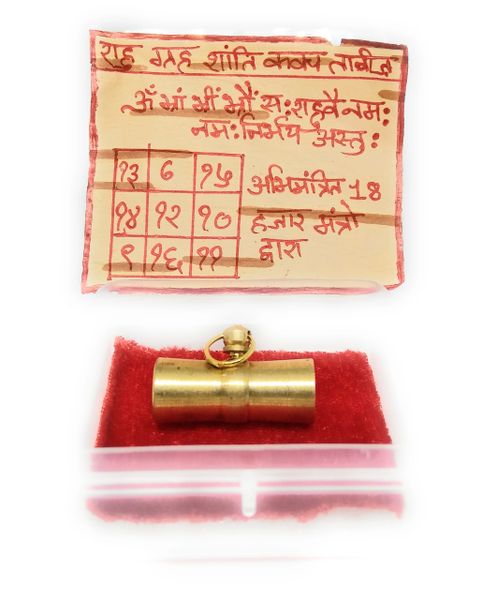 राहु ग्रह शांति कवच ताबीज
ॐ भ्रां भ्रीं भ्रौं स:राहवै नम:
नम:निर्भय अस्तु:
१३ 6 १५
१४ १२ १०
९ १६ ११
अभिमंत्रित 18
हजार मंत्रो
द्वारा